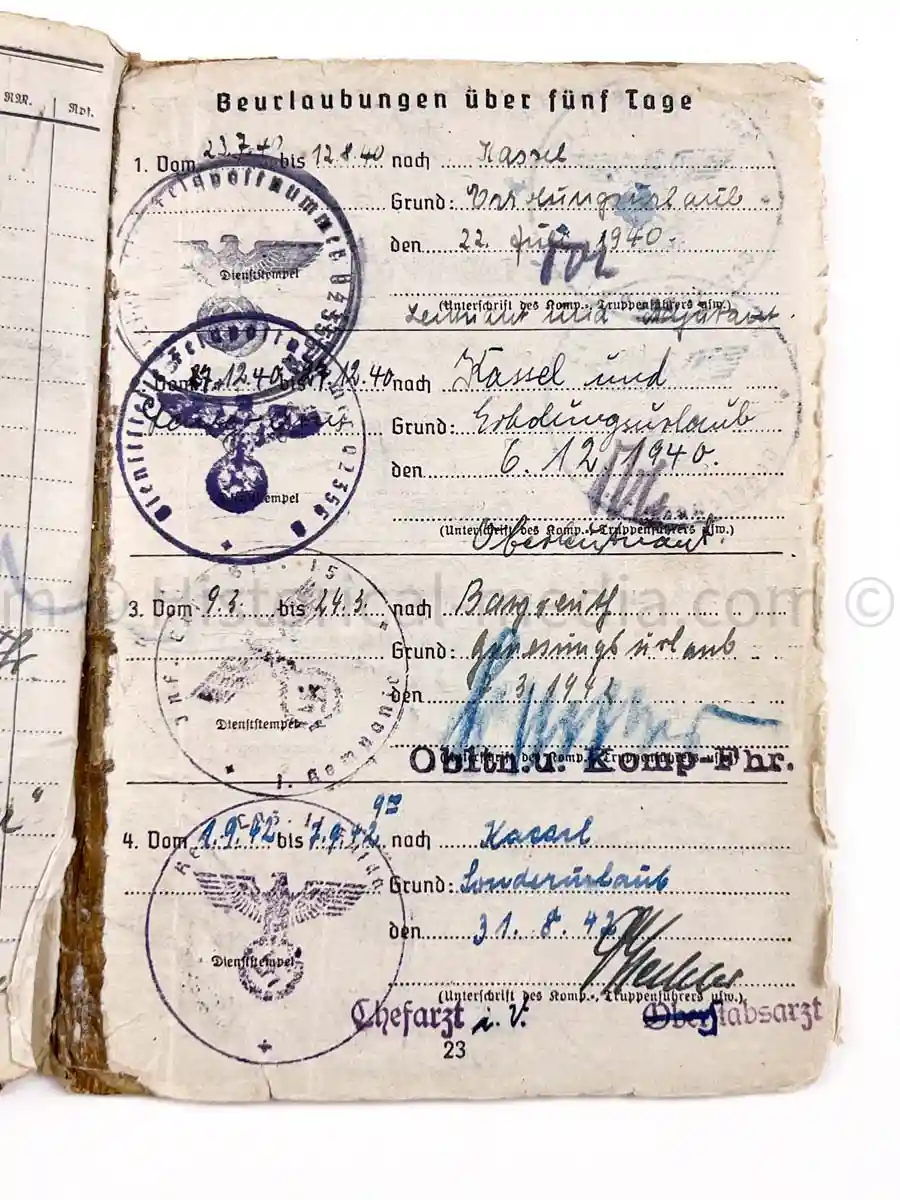 RM.
Rpf.
Beurlaubungen über fünf Tage
1. Vom 23.7.40 bis 12.8.40 nach Kassel
Grund: Erholungsurlaub
den 22. Juli 1940.
Dienststempel
(Unterschrift des Komp.-, Truppenführers usw.)
Leutnant und Adjutant
Vom .12.40 bis 27.12.40 nach Kassel und
Grund: Erholungsurlaub
den 6.12.1940.
Dienststempel
(Unterschrift des Komp.-, Truppenführers usw.)
Oberleutnant
3. Vom 9.3. bis 24.3. nach Bayreuth
Grund: Genesungsurlaub
den 3.1942
Dienststempel
(Unterschrift des Komp.-, Truppenführers usw.)
Obltn.u. Komp-Fhr.
© Historical-media.com ©
4. Vom 1.9.42 bis 7.9.42 nach Kassel
Grund: Sonderurlaub
den 31.8.42
Dienststempel
(Unterschrift des Komp.-, Truppenführers usw.)
Chefarzt i.V. Oberstabsarzt
23